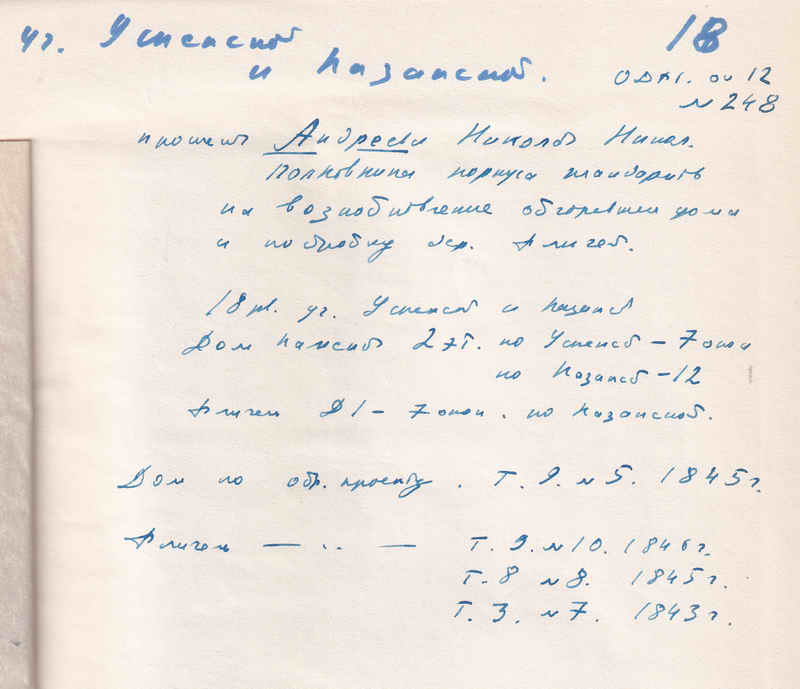 уг. Успенской 18
и Казанской.
оп 12
№ 248
прошен Андреева Николая Никол.
Полковника корпуса жандарм
на возобновление обгоревшего дома
и постройку флигел.
18 уг. Успенской и Казанс
Дом каменный 2 эт. по Успенс – 7 окна
по Казанс – 12
Флигель Д1 – 7 окон. по Казанской.
Дом по обр. проекту. Т. 9. № 5. 1845 г.
Флигель — „ — Т. 9. № 10. 1846 г.
Т. 8 № 8. 1845 г.
Т. 3. № 7. 1843 г.